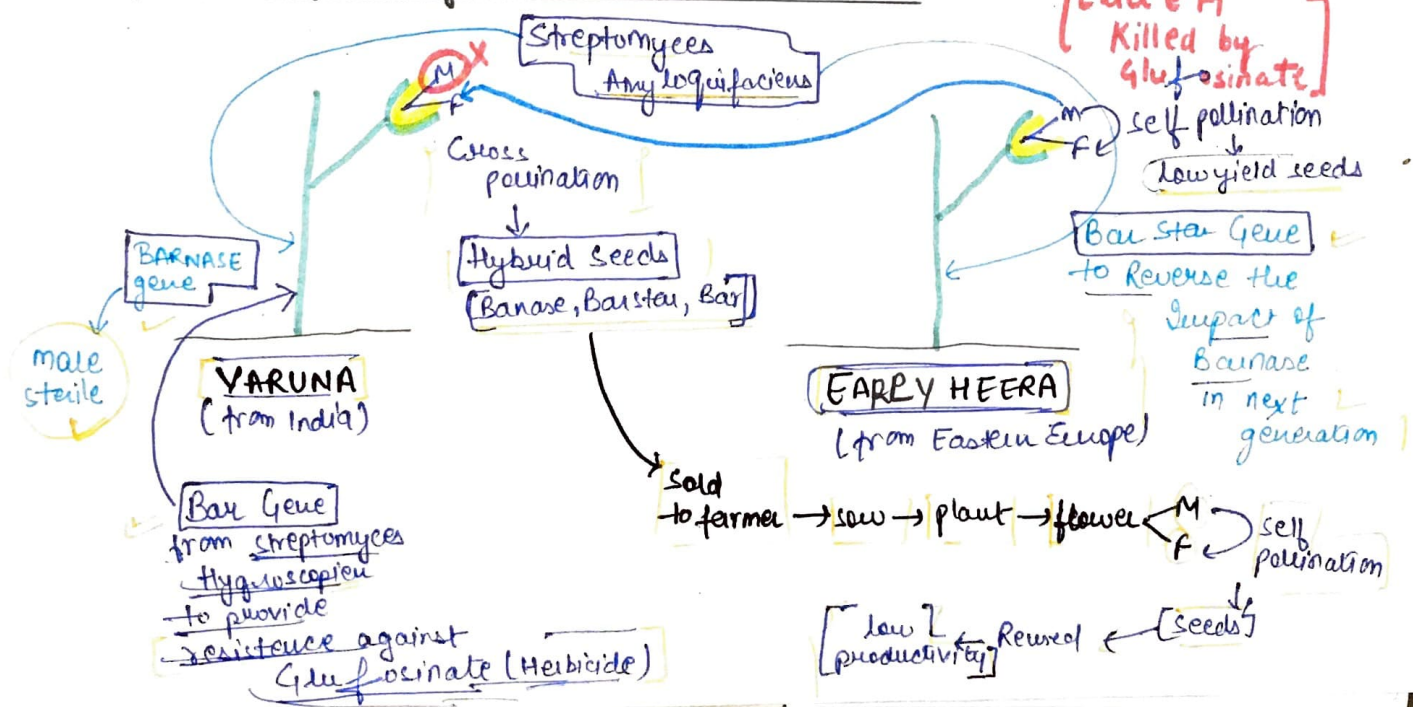 Killed by
Glufosinate]
Streptomyces
Amyloquifaciens
M X
F
Cross
pollination
↓
Hybrid Seeds
[Banase, Barstar, Bar]
M
F
self pollination
↓
low yield seeds
BARNASE
gene
male
sterile
Bar Star Gene
to Reverse the
Impact of
Barnase
in next
generation
VARUNA
(from India)
EARLY HEERA
(from Eastern Europe)
Bar Gene
from streptomyces
Hygroscopicu
to provide
resistence against
Glufosinate (Herbicide)
Sold
to farmer → sow → plant → flower
M
F
self
pollination
↓
[seeds]
← Reused ←
[low
productivity]